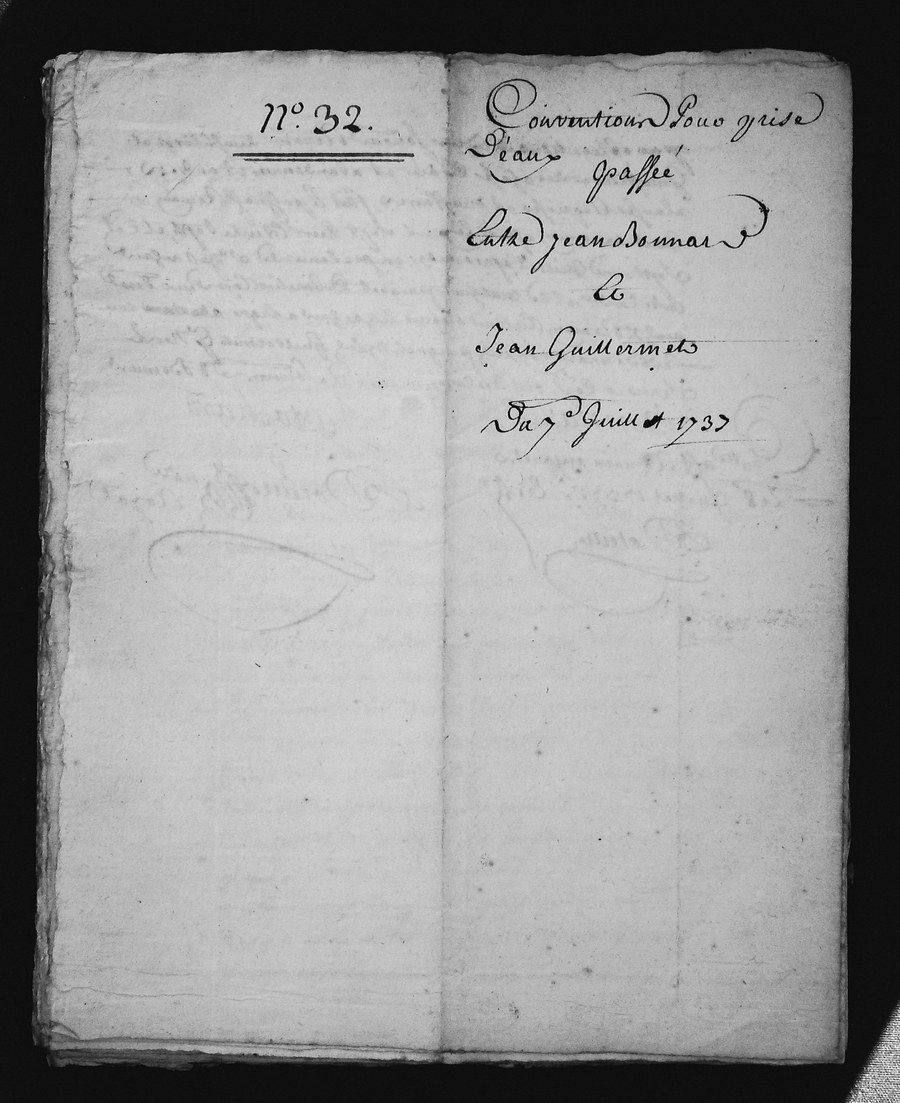 N.º 32.
Conventions Pour prise
D'éaux
passeé
Entre jean Bonnard
Et
Jean Guillermet
Du 7e Juillet 1737